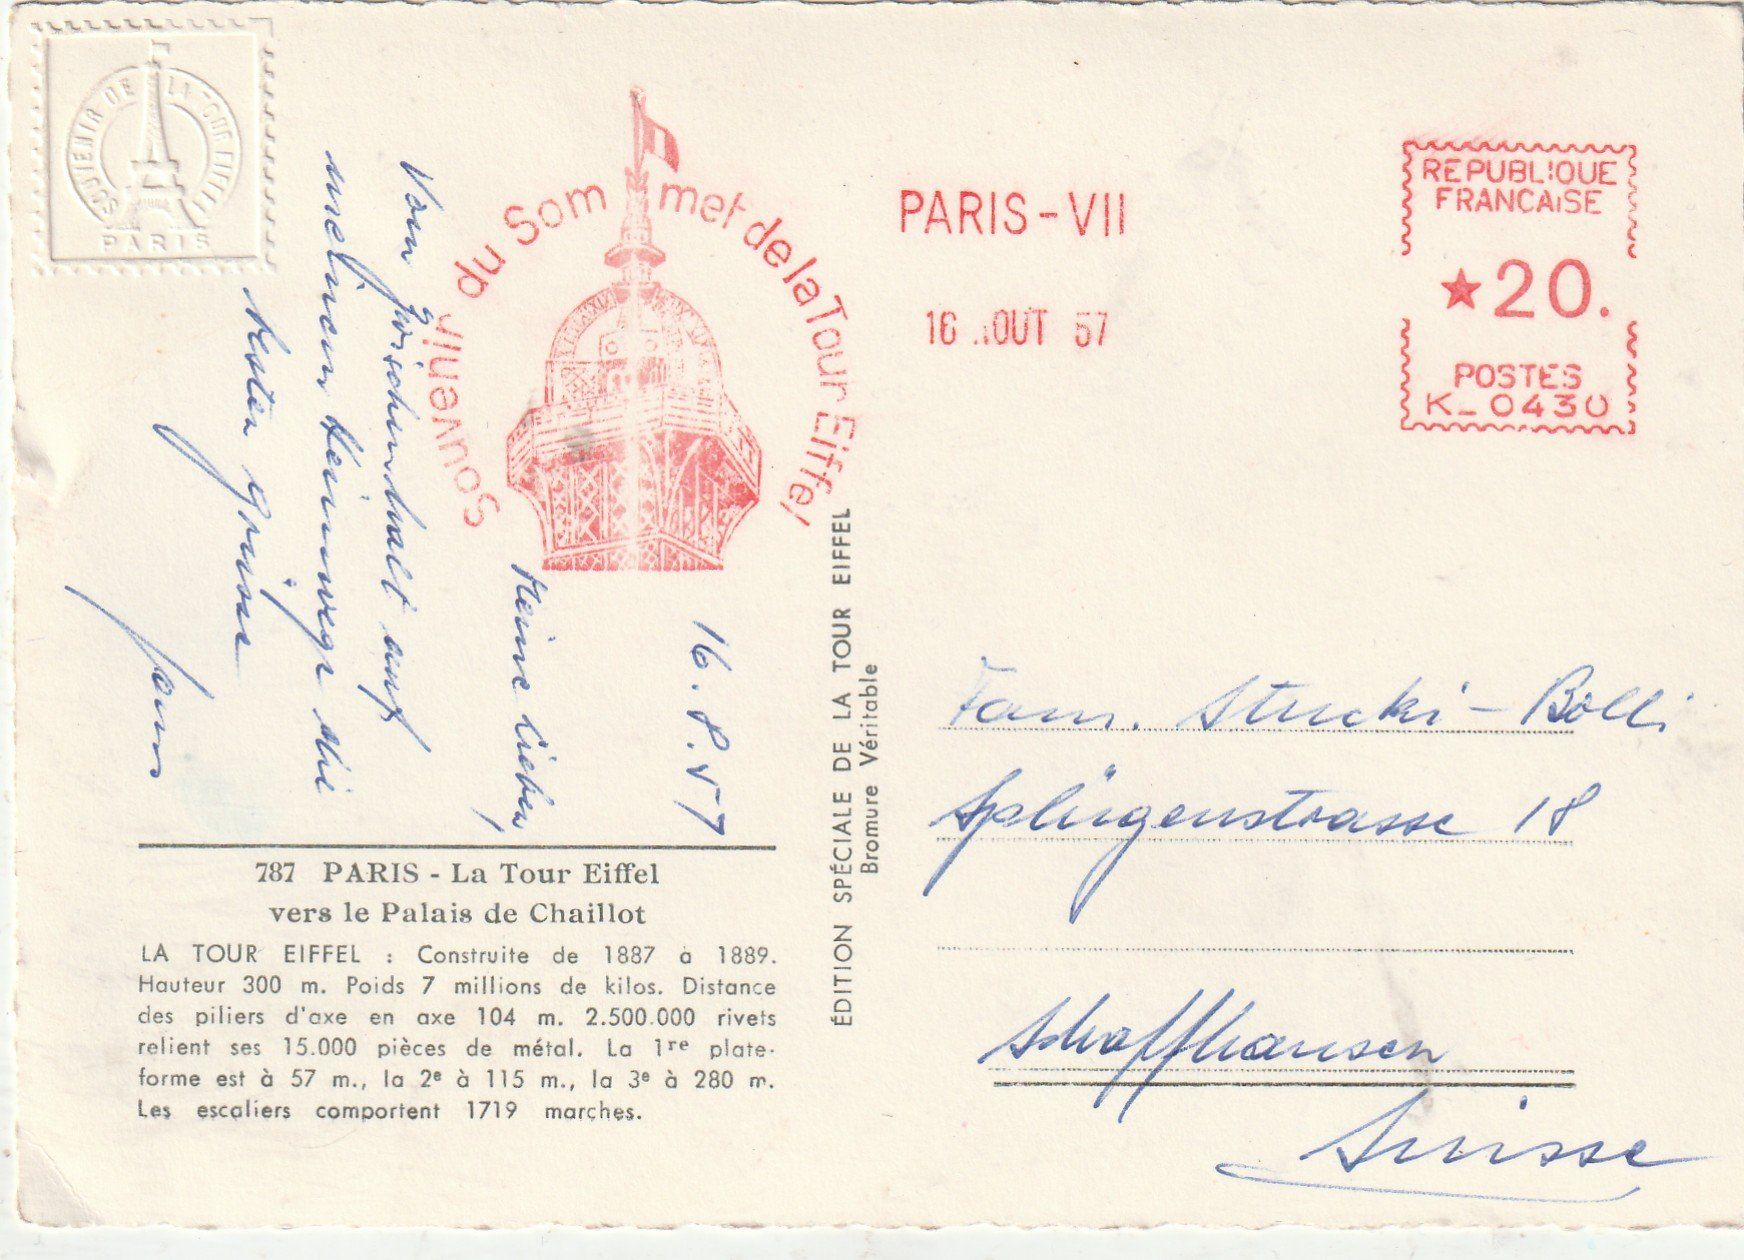 SOUVENIR DE LA TOUR EIFFEL
PARIS
Souvenir du Sommet de la Tour Eiffel
PARIS-VII
16 AOUT 57
REPUBLIQUE
FRANCAISE
★20.
POSTES
K_0430
16.8.57
Meine Lieben,
Vom Zwischenhalt auf
meinem Heimwege die
besten Grüsse
787 PARIS - La Tour Eiffel
vers le Palais de Chaillot
LA TOUR EIFFEL : Construite de 1887 à 1889.
Hauteur 300 m. Poids 7 millions de kilos. Distance
des piliers d'axe en axe 104 m. 2.500.000 rivets
relient ses 15.000 pièces de métal. La 1re plate-
forme est à 57 m., la 2e à 115 m., la 3e à 280 m.
Les escaliers comportent 1719 marches.
ÉDITION SPÉCIALE DE LA TOUR EIFFEL
Bromure Véritable
Fam. Stucki-Bolli
Splügenstrasse 18
Schaffhausen
Suisse